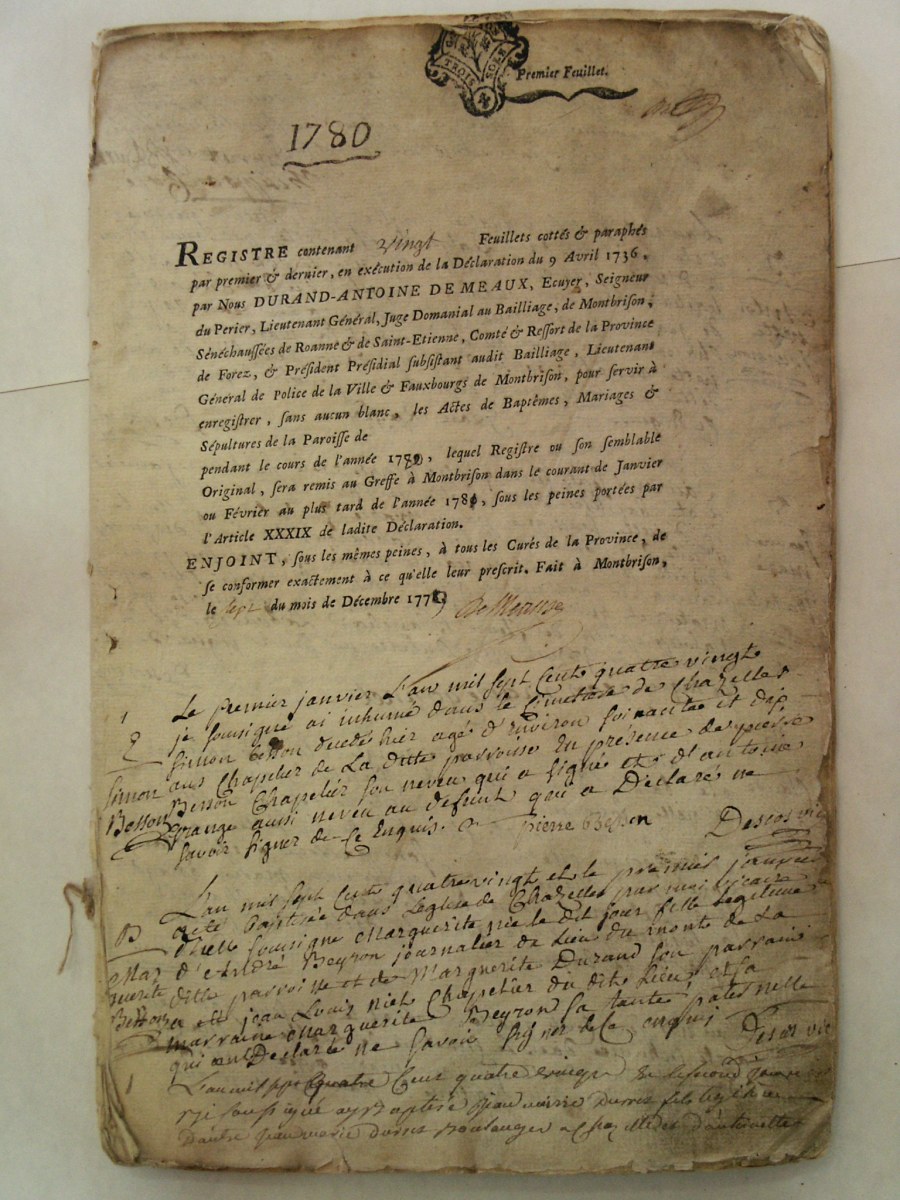 TROIS
Premier Feuillet.
1780
REGISTRE contenant vingt Feuillets cottés & paraphés
par premier & dernier, en exécution de la Déclaration du 9 Avril 1736,
par Nous DURAND-ANTOINE DE MEAUX, Ecuyer, Seigneur
du Perier, Lieutenant Général, Juge Domanial au Bailliage, de Montbrison,
Sénéchaussées de Roanne & de Saint-Etienne, Comté & Ressort de la Province
de Forez, & Président Présidial subsistant audit Bailliage, Lieutenant
Général de Police de la Ville & Fauxbourgs de Montbrison, pour servir à
enregistrer, sans aucun blanc, les Actes de Baptêmes, Mariages &
Sépultures de la Paroisse de
pendant le cours de l'année 1780, lequel Registre ou son semblable
Original, sera remis au Greffe à Montbrison dans le courant de Janvier
ou Février au plus tard de l'année 1781, sous les peines portées par
l'Article XXXIX de ladite Déclaration.
ENJOINT, sous les mêmes peines, à tous les Curés de la Province, de
se conformer exactement à ce qu'elle leur prescrit. Fait à Montbrison,
le sept du mois de Décembre 1779 De Meaux
1 Le premier janvier L'an mil sept Cents quatre vingt
je sousigné ai inhumé dans le Cimetiere de Chazelles
simon Besson decedé hier agé d'Environ soixante et dix
simon ans Chapelier de La dite parroisse En presence de pierre
Besson Besson Chapelier son neveu qui a signé et d'antoine
grange aussi neveu au defunt qui a Declaré ne
savoir signer de Ce Enquis. pierre Besson Descos vic
L'an mil sept Cents quatre vingt et le premier janvier
B a eté baptisée dans Leglise de Chazelles par moi vicaire
d'icelle sousigné Marguerite née le dit jour fille legitime
Mar d'André Beyron journalier du Lieu du mont de La
guerite ditte parroisse et de Marguerite Durand son parrain
a eté jean Louis Chapelier du dit Lieu et sa
marraine Marguerite Beyron sa tante paternelle
qui ont Declaré ne savoir signer de Ce enquis Descos vic
1 L'an mil sept Cent quatre vingt le second janvier
je soussigné ay baptisé jean marie fils legitime
d'autre jean marie Boulanger a Chazelles et d'antoinette